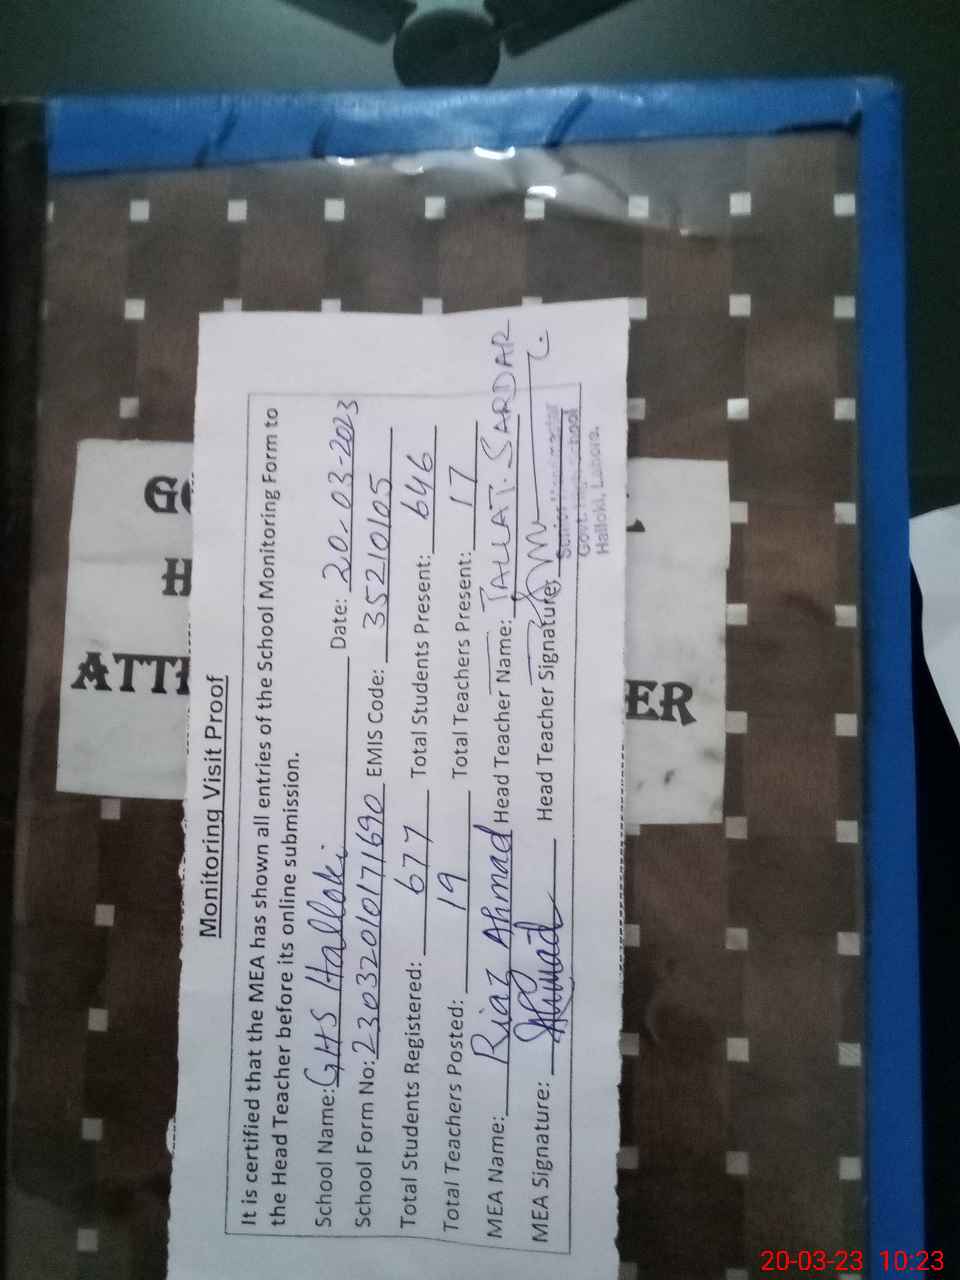 Monitoring Visit Proof
It is certified that the MEA has shown all entries of the School Monitoring Form to
the Head Teacher before its online submission.
School Name: GHS Halloki Date: 20-03-2023
School Form No: 23032010171690 EMIS Code: 35210105
Total Students Registered: 677 Total Students Present: 646
Total Teachers Posted: 19 Total Teachers Present: 17
MEA Name: Riaz Ahmad Head Teacher Name: TALLAT. SARDAR
MEA Signature: Ahmad Head Teacher Signature:
Senior Headmaster
Govt. High School
Halloki, Lahore.
G
H
ATTE
ER
20-03-23 10:23